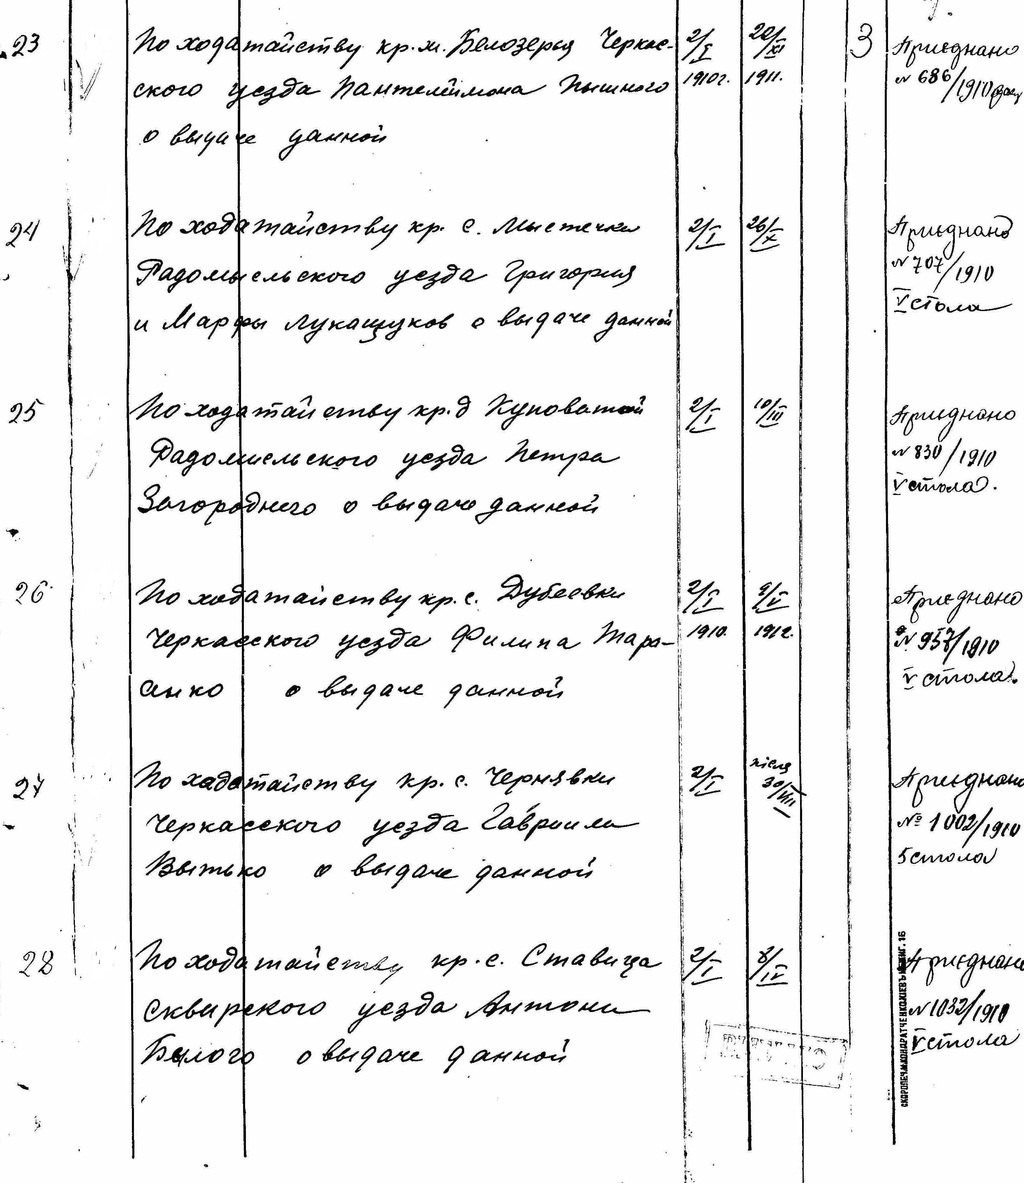 23 По ходатайству кр. м. Белозерья Черкас- 2/I 22/XI 3 Приєднано
ского уезда Пантелеймона Пышного 1910г. 1911. № 686/1910
о выдаче данной
24 По ходатайству кр. с. Мыстечка 2/I 26/X Приєднано
Радомысльского уезда Григория № 707/1910
и Марфы Лукащуков о выдаче данной V стола
25 По ходатайству кр. д Куповатой 2/I 10/III Приєднано
Радомысльского уезда Петра № 830/1910
Загороднего о выдаче данной V стола.
26 По ходатайству кр. с. Дубеевки 2/I 9/IV Приєднано
Черкасского уезда Филипа Тара- 1910. 1912. № 957/1910
енко о выдаче данной V стола.
27 По ходатайству кр. с. Чернявки 2/I після 30/VIII Приєднано
Черкасского уезда Гавриила № 1002/1910
Вытько о выдаче данной 5 стола
28 По ходатайству кр. с. Ставища 2/I 8/IV Приєднано
Сквирского уезда Антона № 1032/1910
Белого о выдаче данной V стола